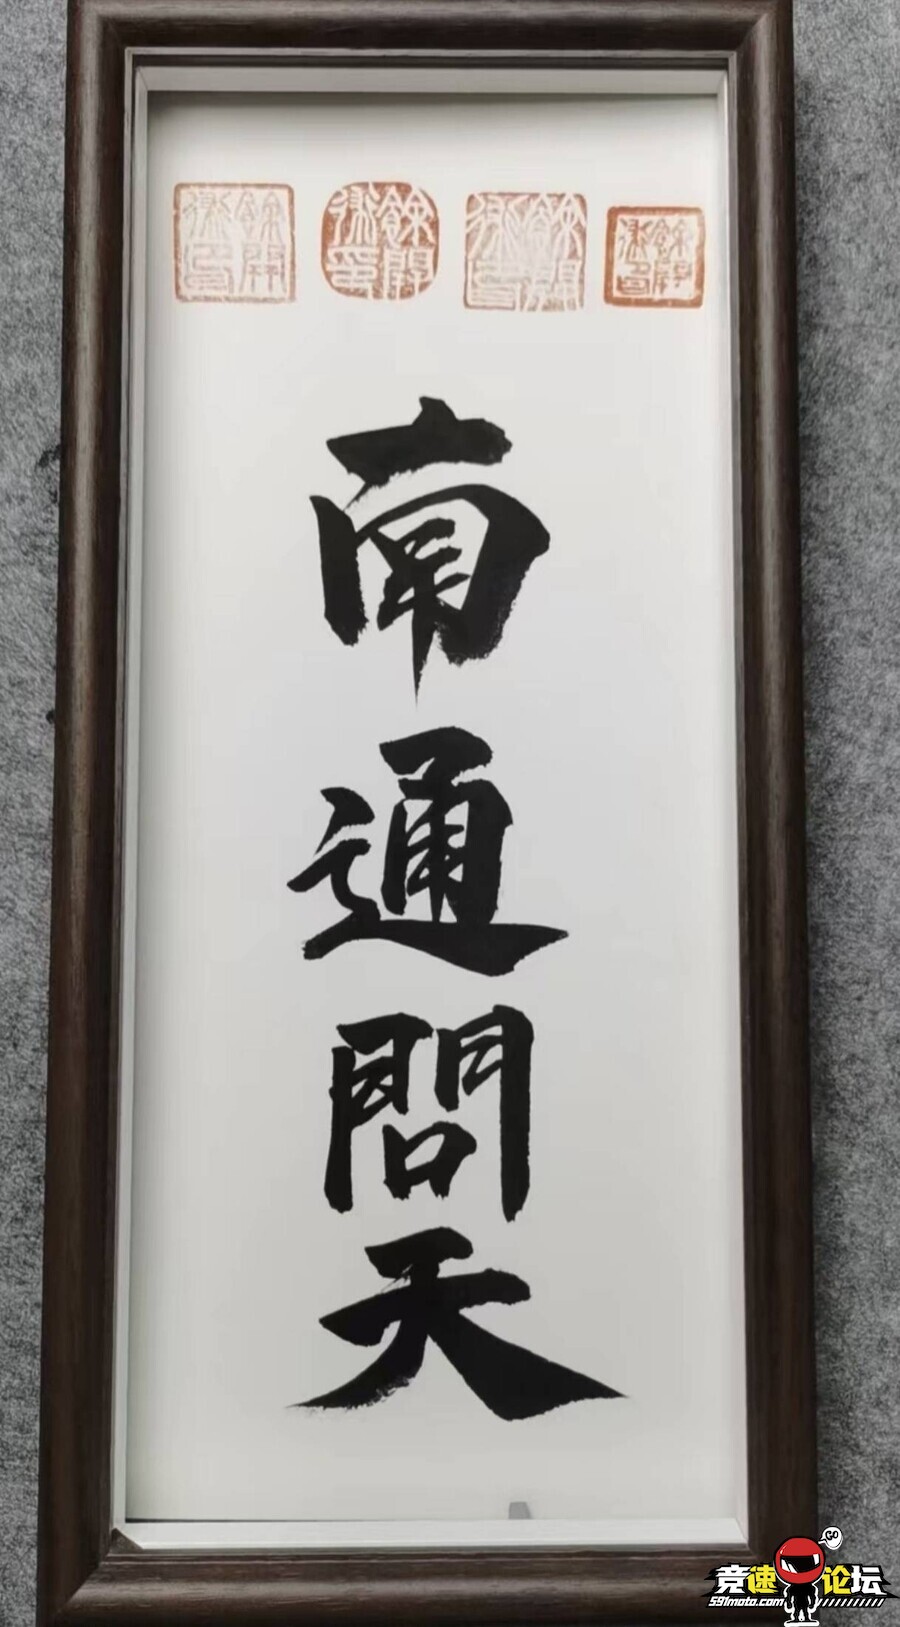 南通問天
GO
竞速论坛
591moto.com